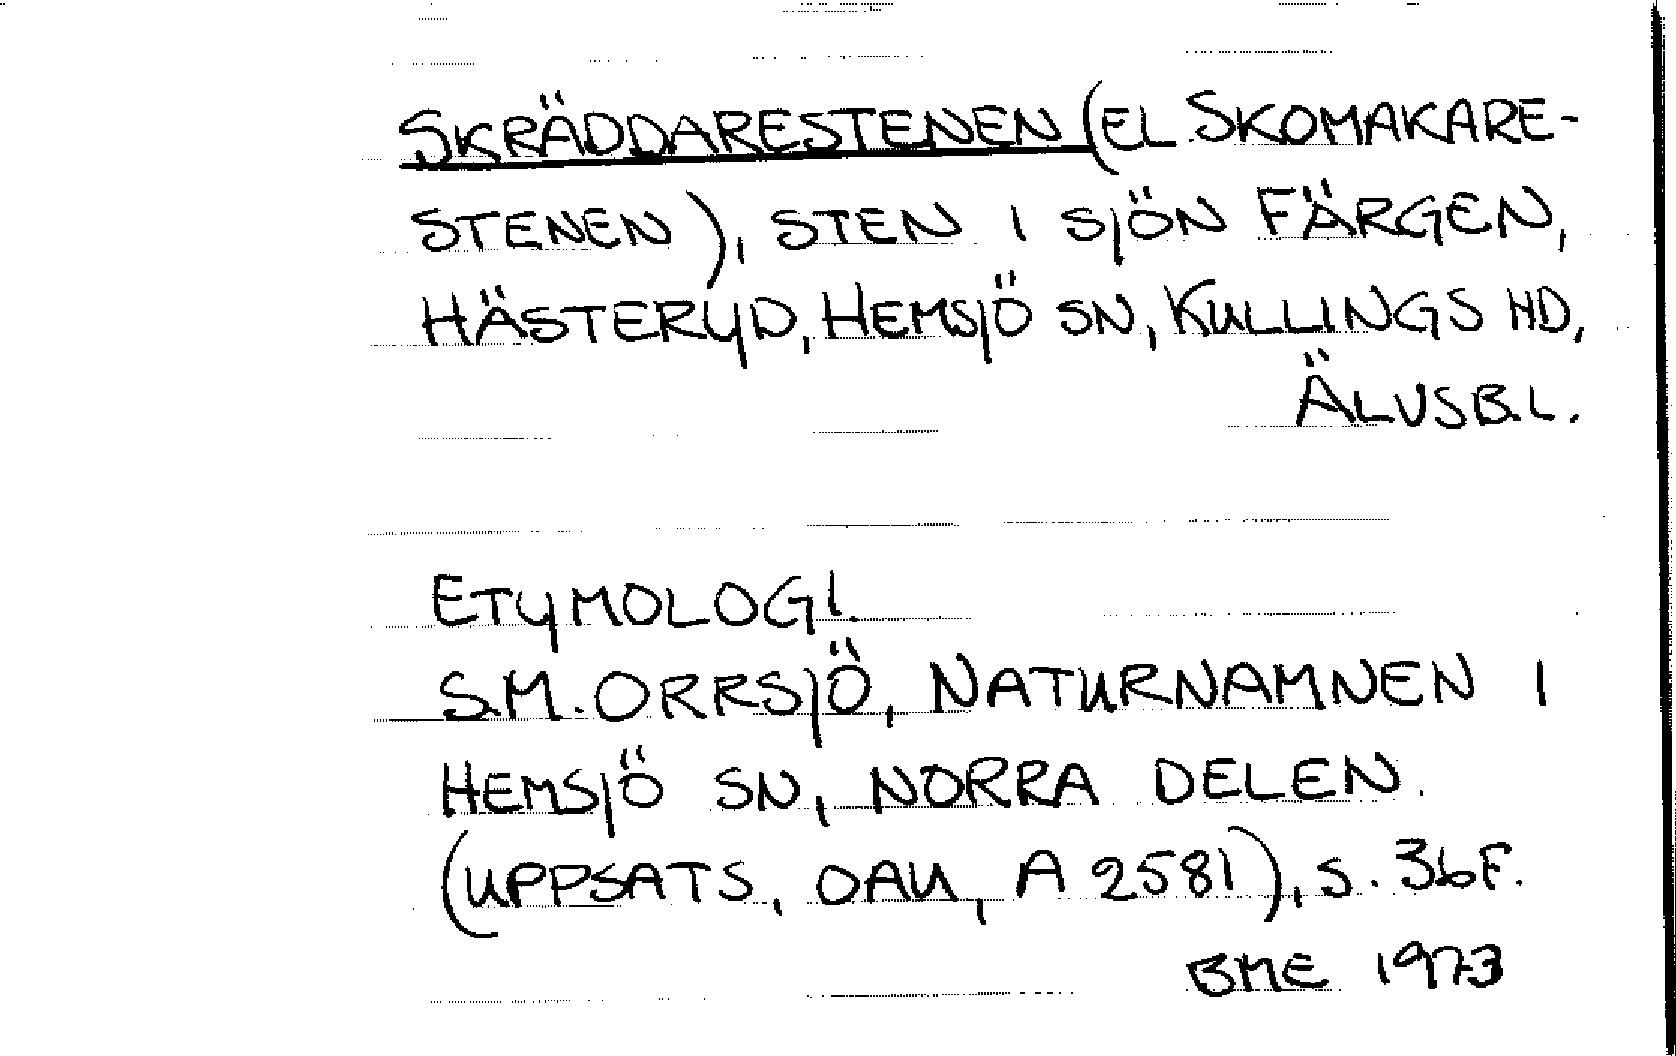 SKRÄDDARESTENEN (EL. SKOMAKARE-
STENEN), STEN I SJÖN FÄRGEN,
HÄSTERYD, HEMSJÖ SN, KULLINGS HD,
ÄLVSB.L.
ETYMOLOGI.
S.M. ORRSJÖ, NATURNAMNEN I
HEMSJÖ SN, NORRA DELEN.
(UPPSATS, OAU, A 2581), S. 36F.
BME 1973